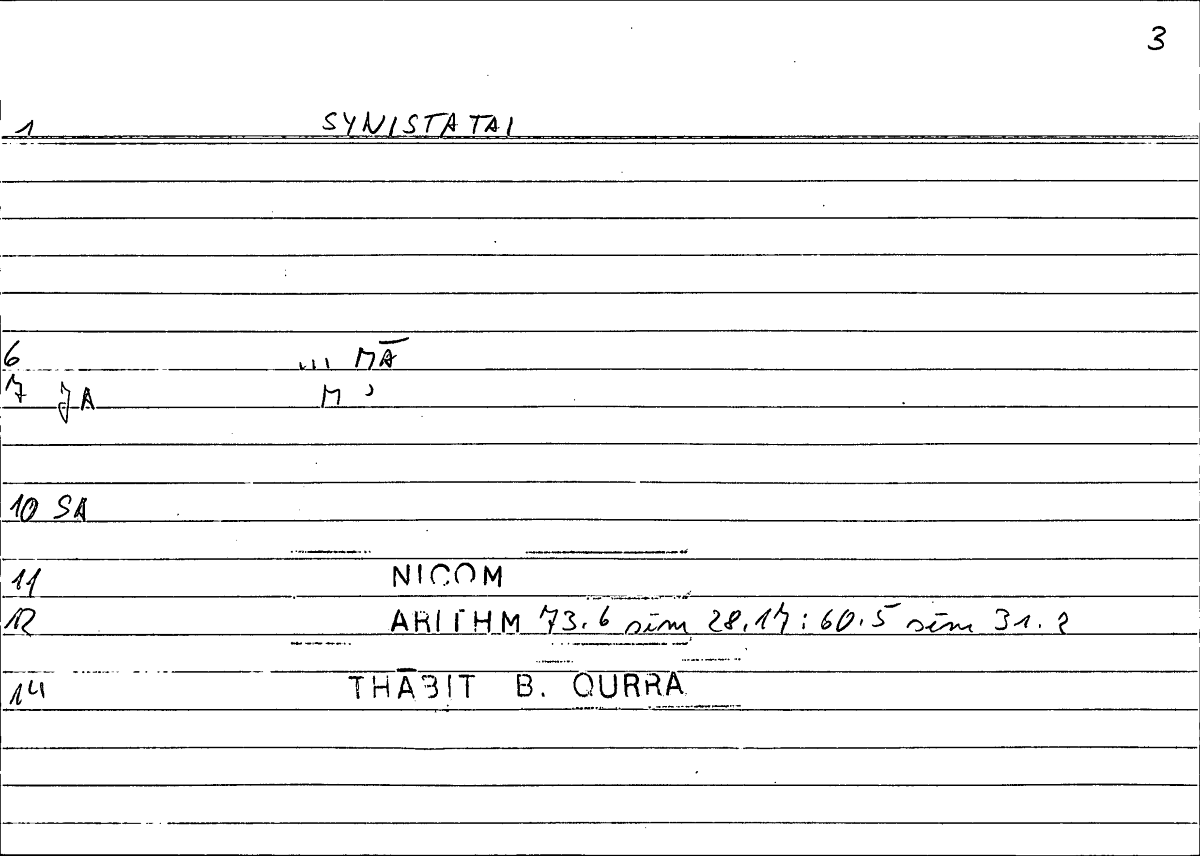 3
1 SYNISTATAI
6 ... MĀ
7 JA M ʾ
10 SA
11 NICOM
12 ARITHM 73.6 sim 28.17 : 60.5 sim 31.2
14 THĀBIT B. QURRA